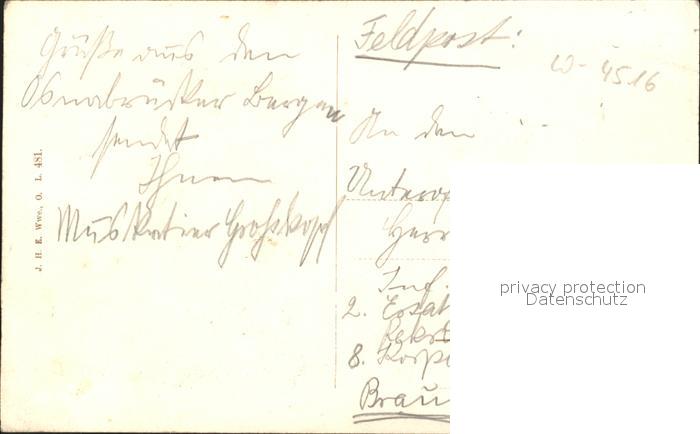 Grüße aus den
Osnabrücker Bergen
sendet
Ihnen
Musketier Großkopf
J. H. E. Wwe., O. L. 481.
Feldpost:
W- 4516
An den
Unterof
Herr
Inf.
2. Ersat
Rekrt
8. Korp
Brau
privacy protection
Datenschutz